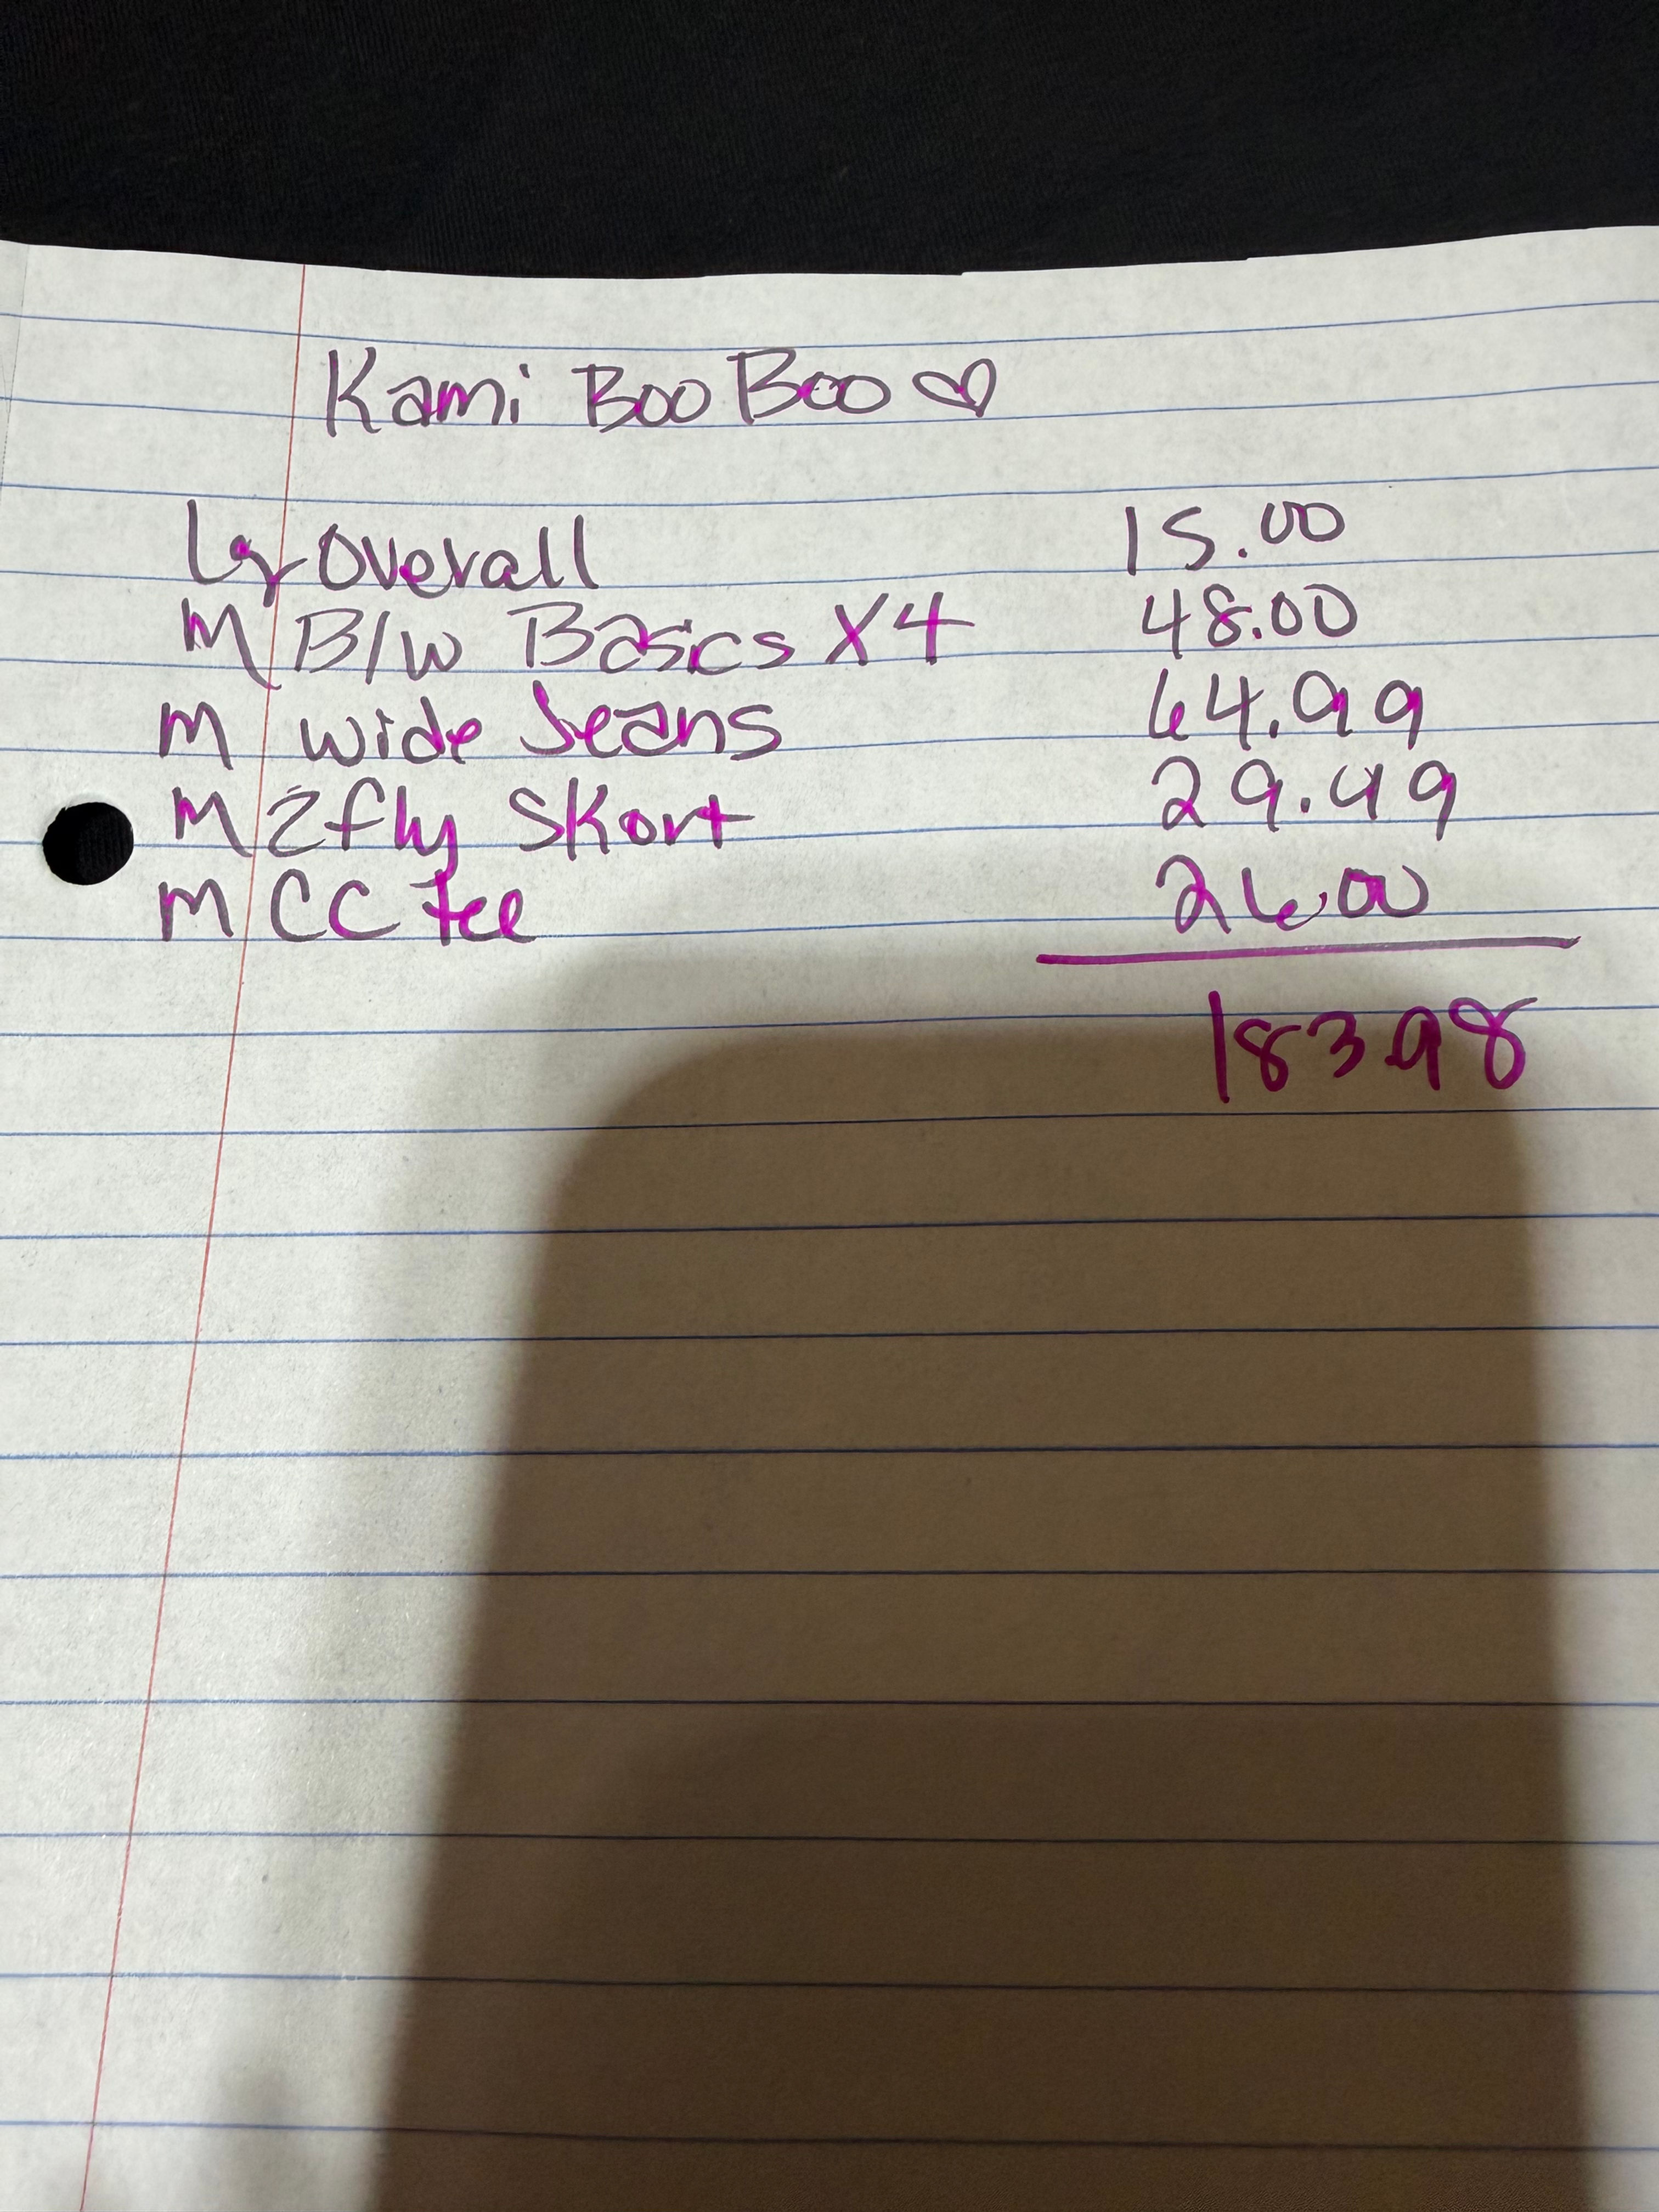 Kami Boo Boo ♡
Lg Overall 15.00
M B/W Basics X4 48.00
M wide Jeans 64.99
M 2fly Skort 29.99
M CC Tee 26.00
183.98